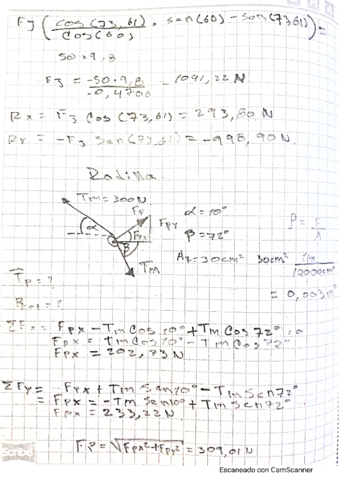 F3 (cos(73,61)/cos(60) . sen(60) - sen(73,61)) =
50 . 9,8
F3 = -50*9,8/-0,4706 = 1041,22 N
Rx = F3 cos(73,61) = 293,80 N
Ry = -F3 sen(73,61) = -998,90N.
Rodilla.
Tm = 300N
Fp
Fpy
α
Fpx
β
Tm
α = 10°
β = 72°
AT = 30cm²
P = F/A
30cm² 1m/10000cm²
= 0,003m²
Fp = ?
ΣFx = Fpx - Tm Cos 10° + Tm Cos 72° = 0
Fpx = Tm Cos 10° - Tm Cos 72°
Fpx = 202,73 N
ΣFy = Fpx + Tm Sen 10° - Tm Sen 72°
= Fpx = -Tm Sen 10° + Tm Sen 72°
Fpx = 233,22N
FP = √Fpx² + Fpy² = 309,01 N
Scribe
Escaneado con CamScanner